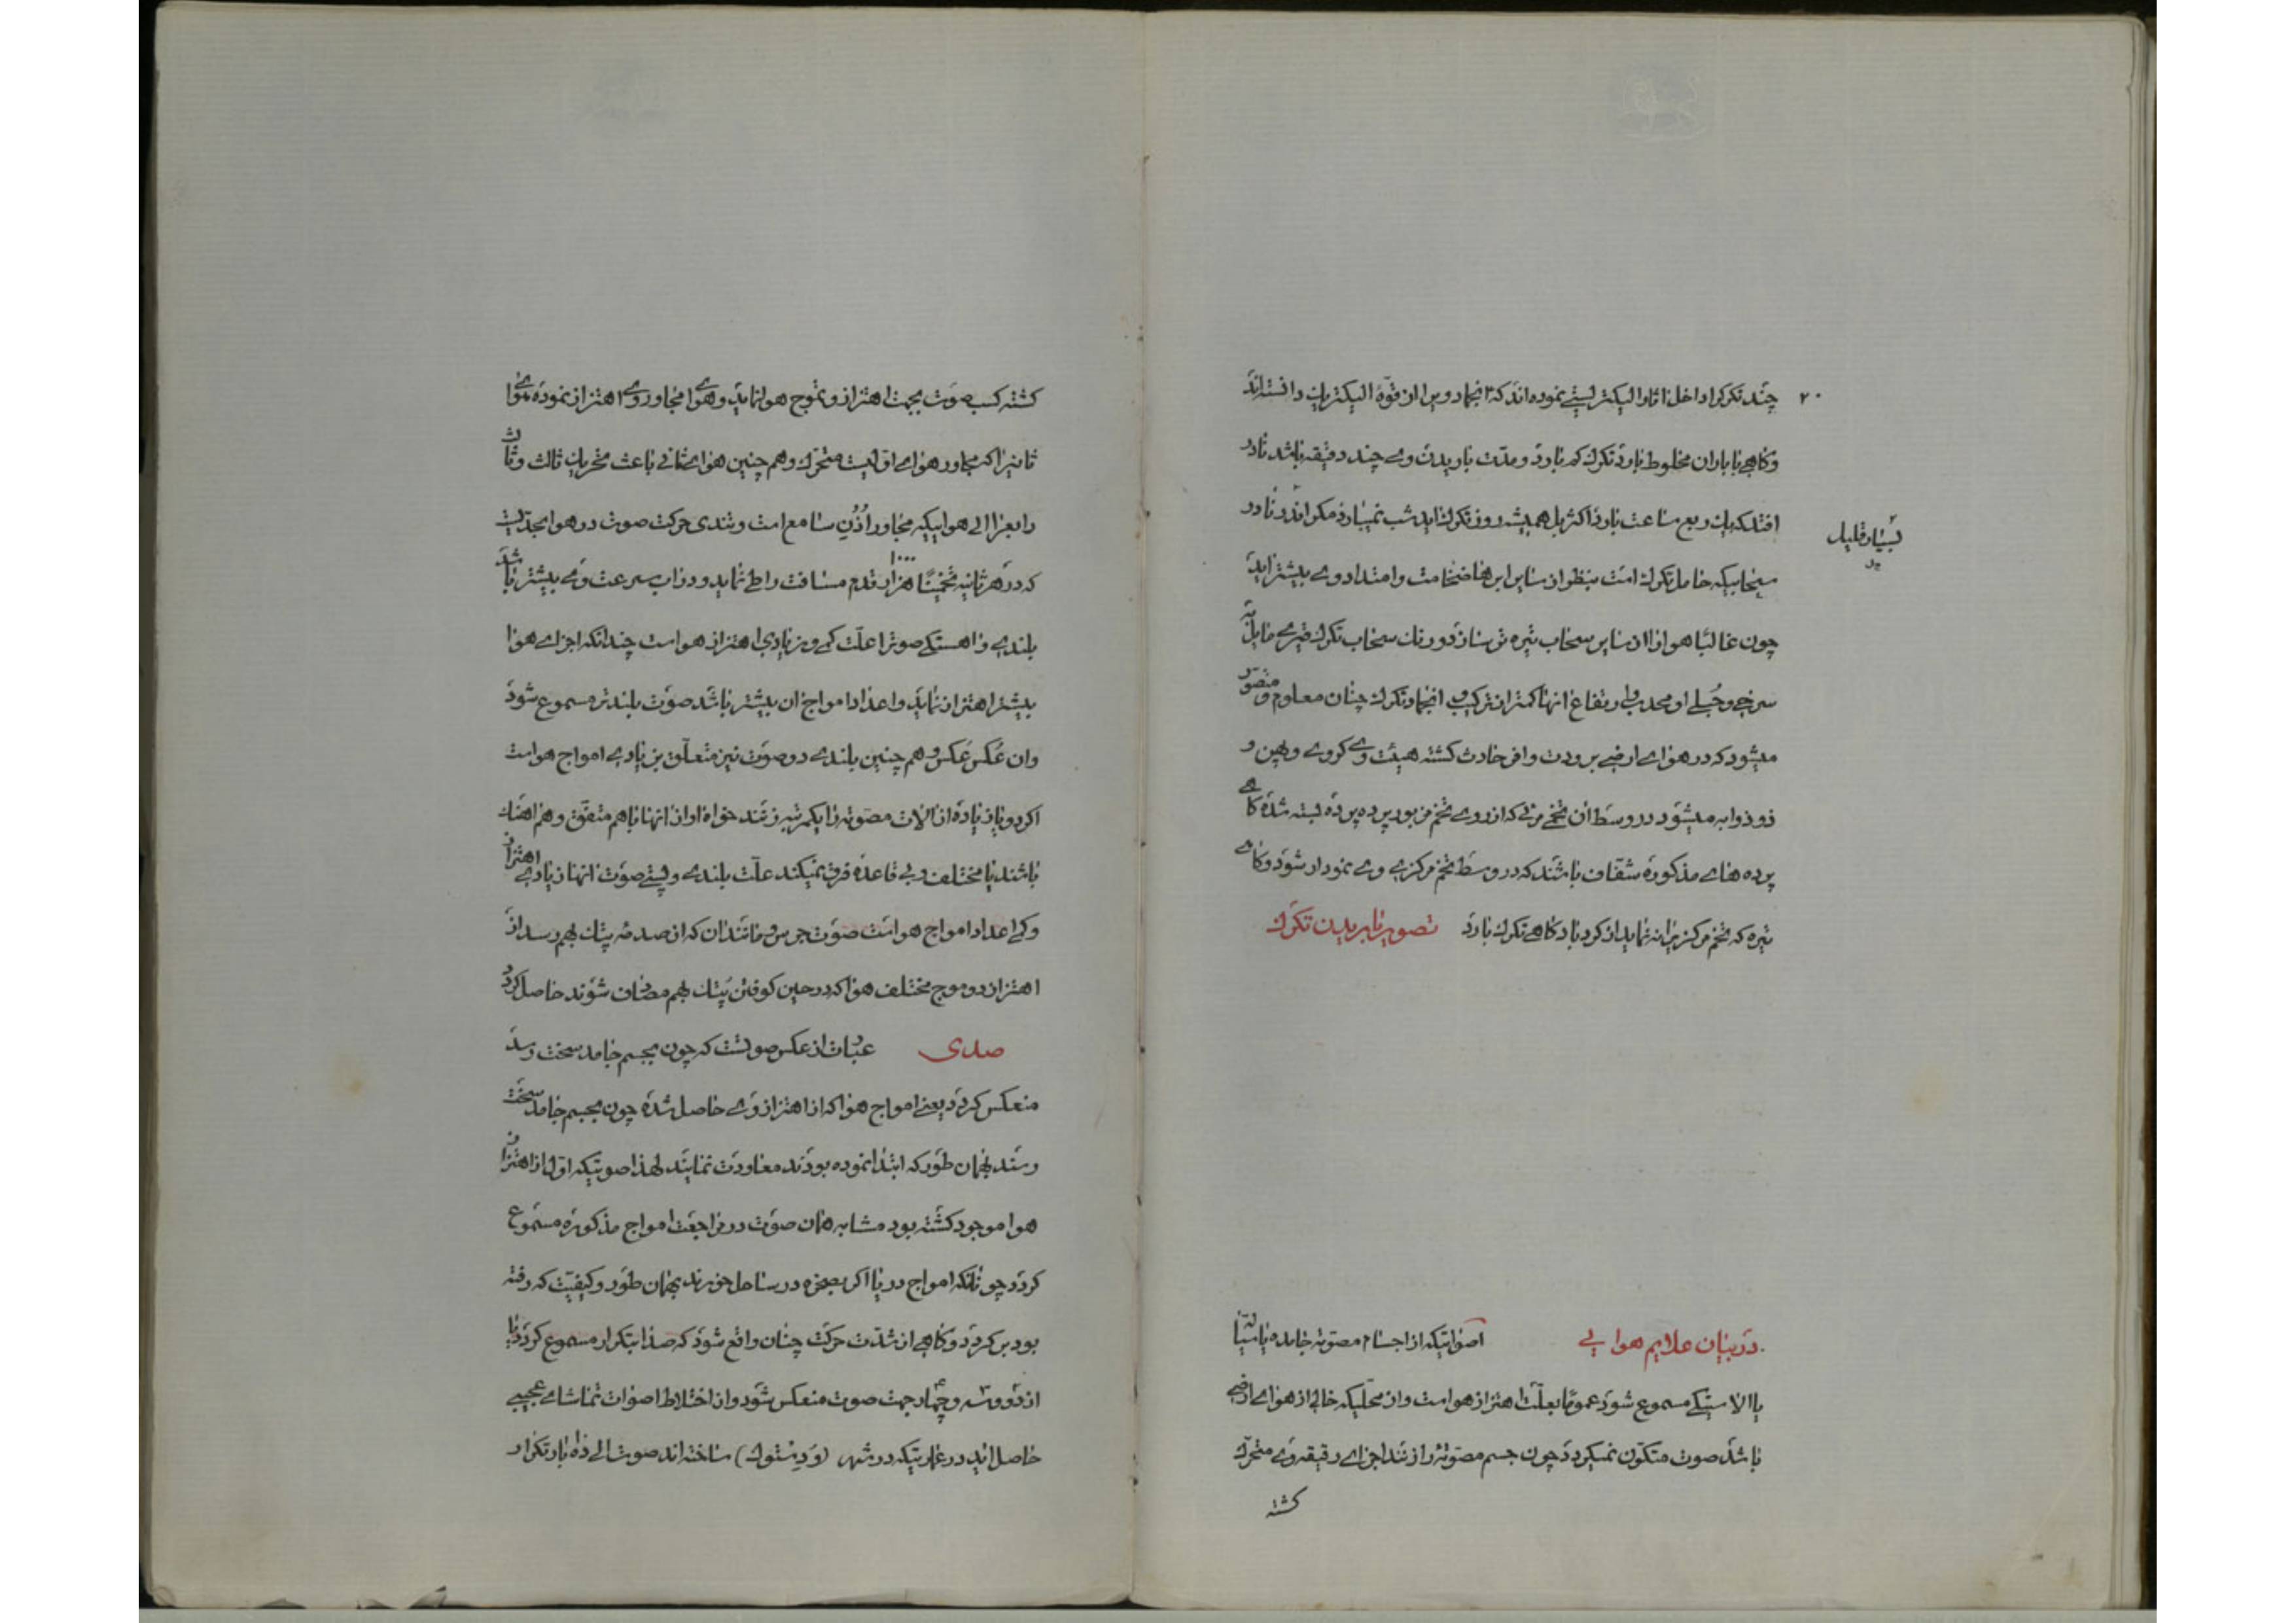 ۲۰
چند تکرک را داخل اثار الیکتریستی نموده‌اند که انجماد ویرا از قوّهٔ الیکتریک دانسته‌اند
و کاهی با باران مخلوط بارد تکرک که بارد و مدّت باریدن وی چند دقیقه باشد نادر
افتد که یک ربع ساعت بارد اکثر بل همیشه روز تکرک اید شب نمیبارد مکر اندر نادر
بسیار قلیل
سحابیکه حامل تکرک است بنظر از سایر ابرها ضخامت و امتداد وی بیشتر اید
چون غالبا هوا را از سایر سحاب تیره تر سازد و رنک سحاب تکرک قیری مایل به
سرخی و جبلی او محدب و ارتفاع انها کمتر از ترکیب انجماد تکرک چنان معلوم و متصوّر
میشود که در هوای ارضی برودت وافر حادث کشته هیئت وی کروی و پهن و
ذو ذوابه میشود در وسط ان تخمی مرئی که از روی تخم مزبور پرده پرده بسته شده کاهی
پرده های مذکوره شفّاف باشند که در وسط تخم مرکزی وی نمودار شود و کاهی
تیره که تخم مرکز را نه نماید از کرد باد کاهی تکرک بارد تصویر باریدن تکرک
در بیان علایم هوایی اصواتیکه از اجسام مصوته جامده یا سیّاله
یا الاستیکی مسموع شود عموما بعلّت اهتزاز هواست و از محلیکه خالی از هوای ارضی
باشد صوت متکوّن نمیکردد چون جسم مصوّته را زنند اجزای رقیقه وی متحرّک
کشته
کشته کسب صوت بجهت اهتزاز و تموج هوا نماید و هوای مجاور وی اهتزاز نموده هوای
ثانیرا که مجاور هوای اوّلیست متحرّک و هم چنین هوای ثانی باعث تحریک ثالث و ثالث
رابعرا الی هواییکه مجاور اُذُنِ سامع است و تندی حرکت صوت در هوا بحدّیست
که در هر ثانیه تخمینًا هزار ۱۰۰۰ قدم مسافت را طی نماید و در اب سرعت وی بیشتر باشد
بلندی و اهستکی صوترا علّت کمی و زیادی اهتزاز هواست چندانکه اجزای هوا
بیشتر اهتزاز نماید و اعداد امواج ان بیشتر باشد صوت بلندتر مسموع شود
وان عکس عکس و هم چنین بلندی دو صوت نیز متعلّق بزیادی امواج هواست
اکر دو یا زیاده از الات مصوّته را یکمرتبه زنند خواه اواز انها باهم متفق و هم اهنک
باشند یا مختلف و بی قاعده فرق نمیکند علّت بلندی و پستی صوت انها زیادی اهتزاز
و کمی اعداد امواج هواست صوت جرس و مانند ان که از صدمه پتک بهم رسد از
اهتزاز دو موج مختلف هوا که در حین کوفتن پتک بهم مضاف شوند حاصل کردد
صدی عبارت از عکس صوتست که چون بجسم جامد سخت رسد
منعکس کردد یعنی امواج هوا که از اهتزاز وی حاصل شده چون بجسم جامد سخت
رسند بهمان طور که ابتدا نموده بودند معاودت نمایند لهذا صوتیکه اوّل از اهتزاز
هوا موجود کشته بود مشابه همان صوت در مراجعت امواج مذکوره مسموع
کردد چونانکه امواج دریا اکر بصخره در ساحل خورند بهمان طور و کیفیّت که رفته
بود بر کردد و کاهی از شدّت حرکت چنان واقع شود که صدا بتکرار مسموع کردد یا
از دو و سه و چهار جهت صوت منعکس شود و از اختلاط اصوات تماشای عجیبی
حاصل اید در عمارتیکه در شهر (وَدِستوک) ساخته اند صوت الی ده بار تکرار